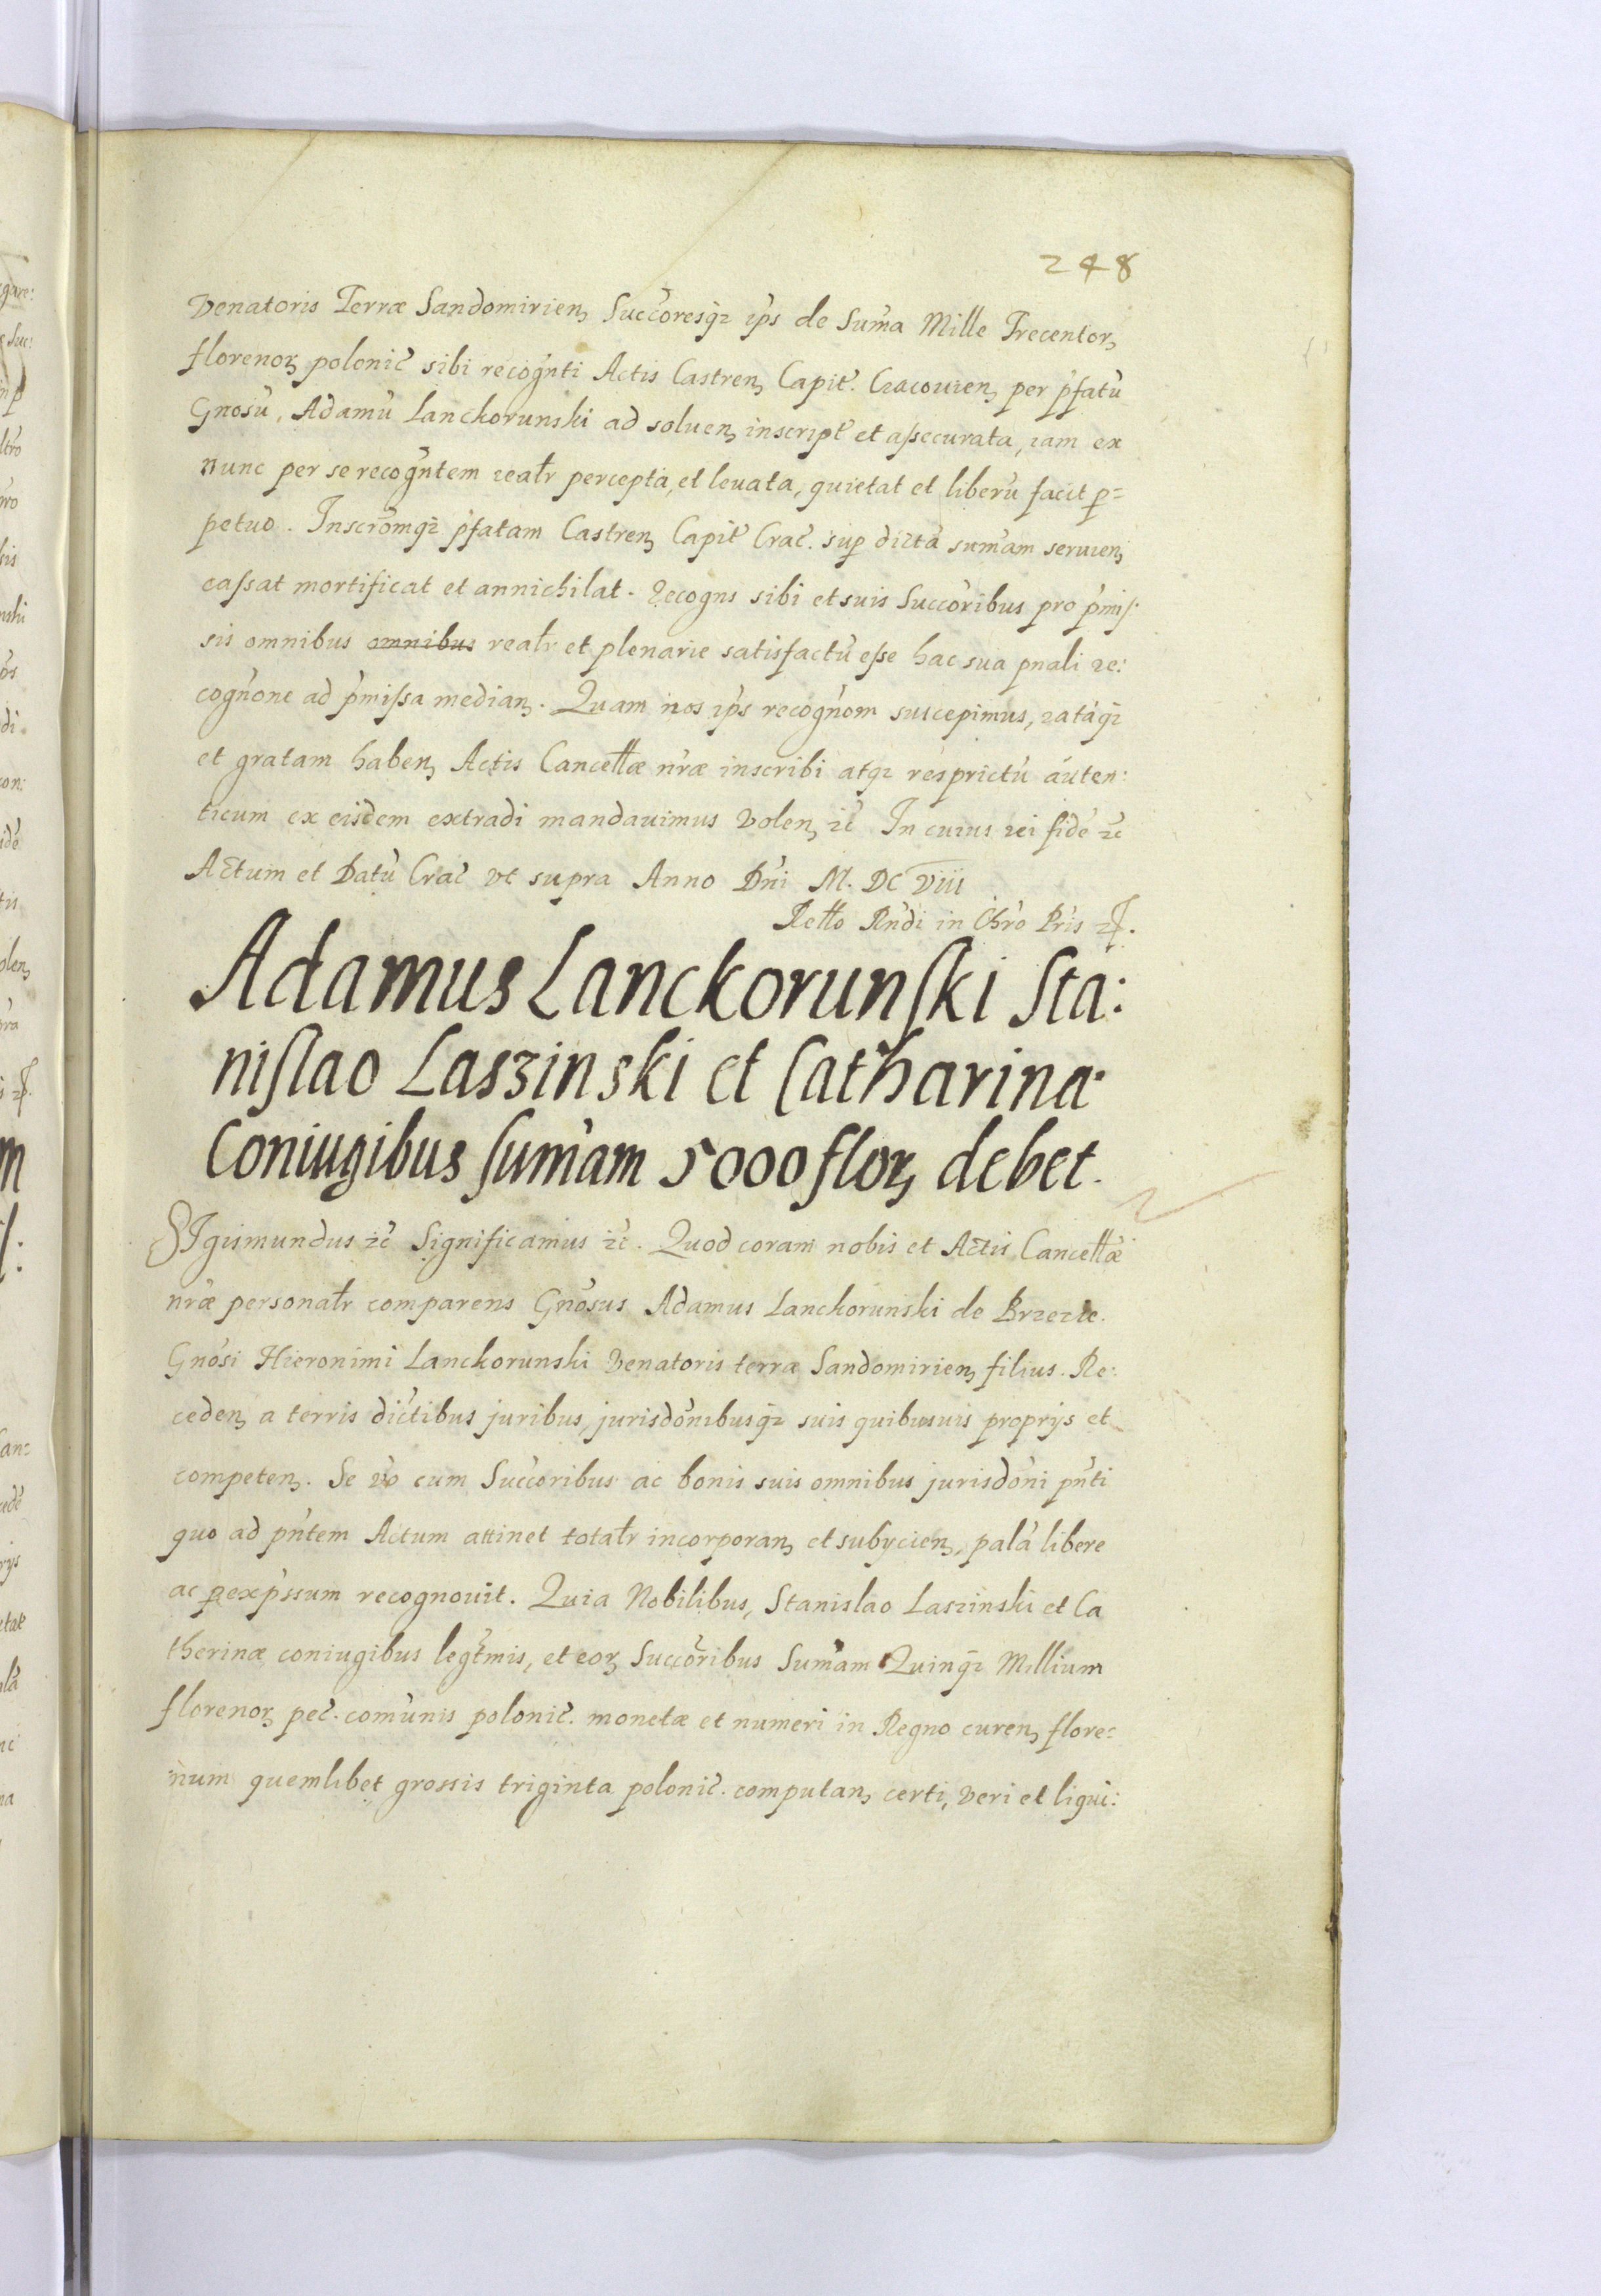 248
Venatoris Terræ Sandomirien̨ Succ̃oresq̃ ip̃s de Sum̃a Mille Trecentor̨
florenoꝝ polonic̃ sibi recog̃nti Actis Castren̨ Capit̃. Cracouien̨ per p̃fatũ
Gnosũ, Adamũ Lanckorunski ad soluen̨ inscript̃ et aſsecurata, iam ex
nunc per se recog̃ntem realr̃ percepta, et leuata, quietat et liberũ facit p=
petuo. Inscrõmq̃ p̃fatam Castren̨ Capit̃ Crac̃. sup dictã sum̃am seruien̨
caſsat mortificat et annichilat. Recogns sibi et suis Succ̃oribus pro p̃miſ.
sis omnibus omnibus realr̃ et plenarie satisfactũ eſse hac sua pnali re:
cog̃none ad p̃miſsa median̨. Quam nos ip̃s recog̃nom suscepimus, ratãq̃
et gratam haben̨ Actis Cancell̃æ nr̃æ inscribi atq̃ resprictũ auten:
ticum ex eisdem extradi mandauimus Volen̨ zc̃ In cuius rei fidẽ zc̃
Actum et Datũ Crac̃ vt supra Anno Dñi M. DC VIII
Rell̃o Rñdi in Chr̃o Pr̃is zc̃.
Adamus Lanckorunſki Sta:
niſlao Laszinski et Catharina
Coniugibus ſum̃am 5000 floꝝ debet.
SIgismundus zc̃ Significamus zc̃. Quod coram nobis et Actis Cancell̃æ
nr̃æ personalr̃ comparens Gñosus Adamus Lanckorunski de Brzezie.
Gñosi Hieronimi Lanckorunski Venatoris terræ Sandomirien̨ filius. Re:
ceden̨ a terris dic̃tibus juribus, jurisdõnibusq̃ suis quibusuis proprijs et
competen̨. Se vo cum Succ̃oribus ac bonis suis omnibus jurisdõni pñti
quo ad pñtem Actum attinet totalr̃ incorporan̨ et subycien̨, palã libere
ac p exp̃ssum recognouit. Quia Nobilibus, Stanislao Laszinski et Ca
therinæ coniugibus legt̃mis, et eoꝝ Succ̃oribus Sum̃am Quinq̃ Millium
florenoꝝ pec̃. com̃unis polonic̃. monetæ et numeri in Regno curen̨ flore=
num quemlibet grossis triginta polonic̃. computan̨ certi, veri et liqui: